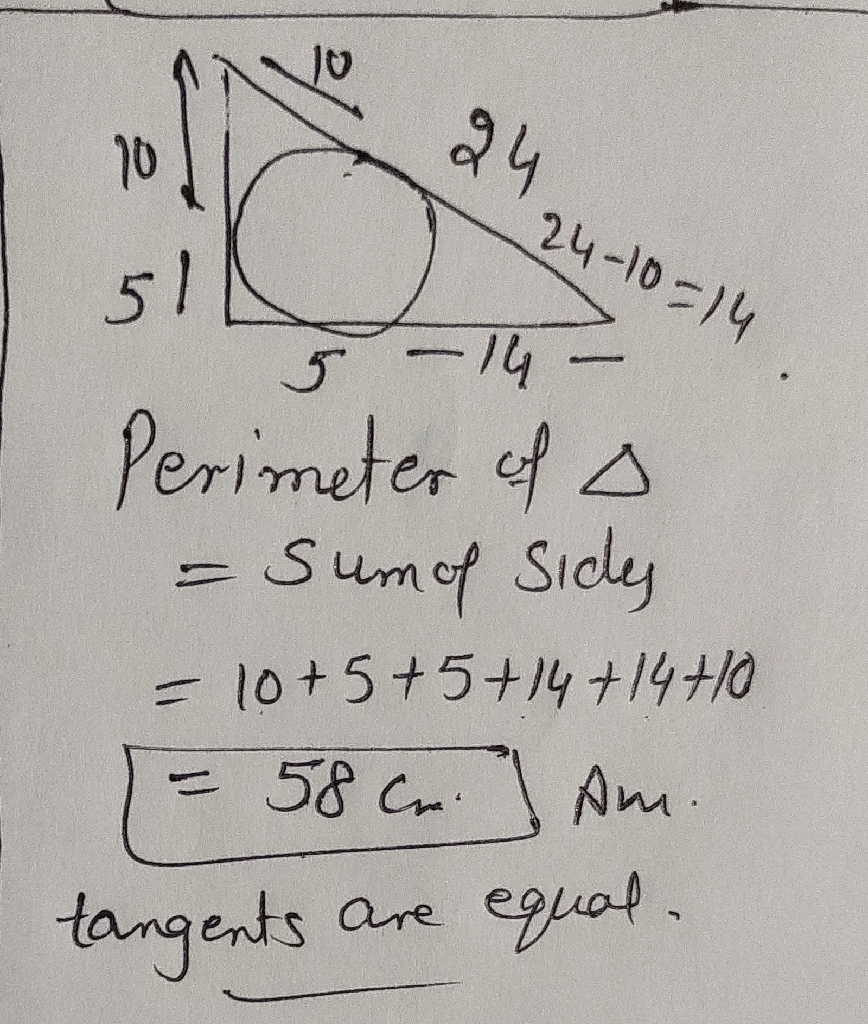 10
10
24
24-10=14
5
5 - 14 -
Perimeter of Δ
= Sum of Sides
= 10+5+5+14+14+10
= 58 Cm. Ans.
tangents are equal.